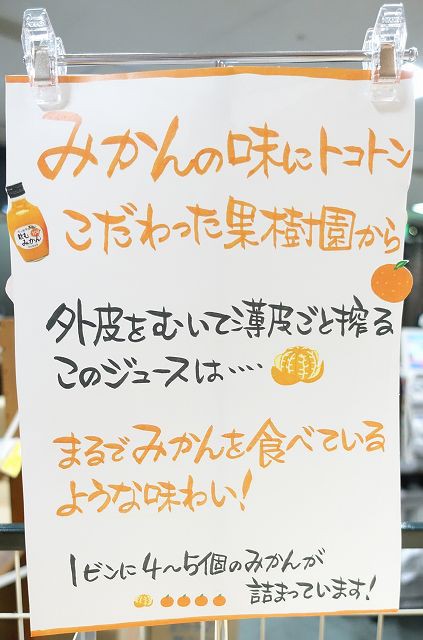 みかんの味にトコトン
こだわった果樹園から
飲む
みかん
外皮をむいて薄皮ごと搾る
このジュースは‥‥
まるでみかんを食べている
ような味わい!
1ビンに4〜5個のみかんが
詰まっています!